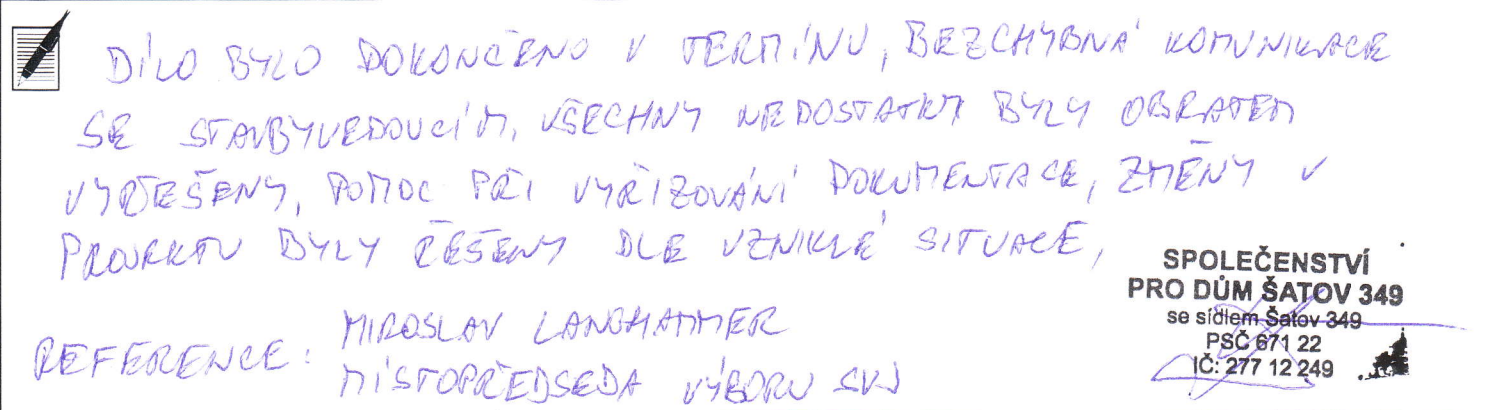 DÍLO BYLO DOKONČENO V TERMÍNU, BEZCHYBNÁ KOMUNIKACE
SE STAVBYVEDOUCÍM, VŠECHNY NEDOSTATKY BYLY OBRATEM
VYŘEŠENY, POMOC PŘI VYŘIZOVÁNÍ DOKUMENTACE, ZMĚNY V
PROJEKTU BYLY ŘEŠENY DLE VZNIKLÉ SITUACE,
REFERENCE: MIROSLAV LANGHAMMER
MÍSTOPŘEDSEDA VÝBORU SVJ
SPOLEČENSTVÍ
PRO DŮM ŠATOV 349
se sídlem Šatov 349
PSČ 671 22
IČ: 277 12 249